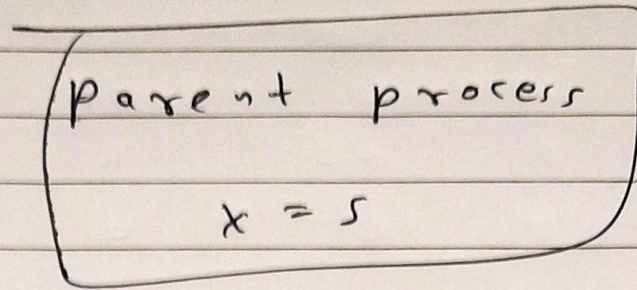 Parent process
x = 5